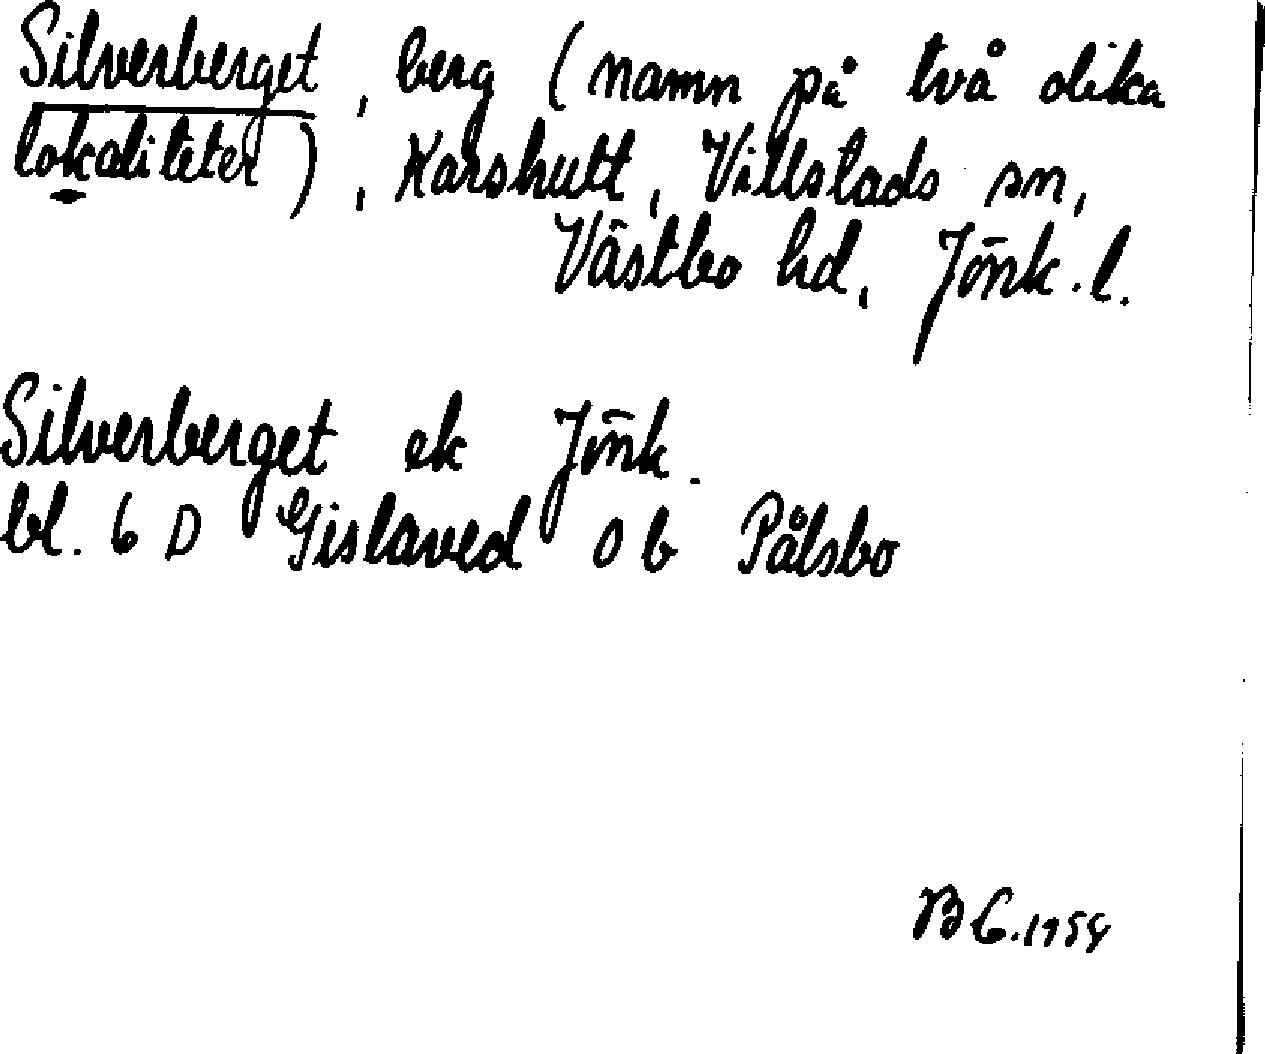 Silverberget, berg (namn på två olika
lokaliteter), Karshult, Villstads sn,
Västbo hd, Jönk.l.
Silverberget ek Jönk.
bl. 6 D Gislaved 0 b Pålsbo